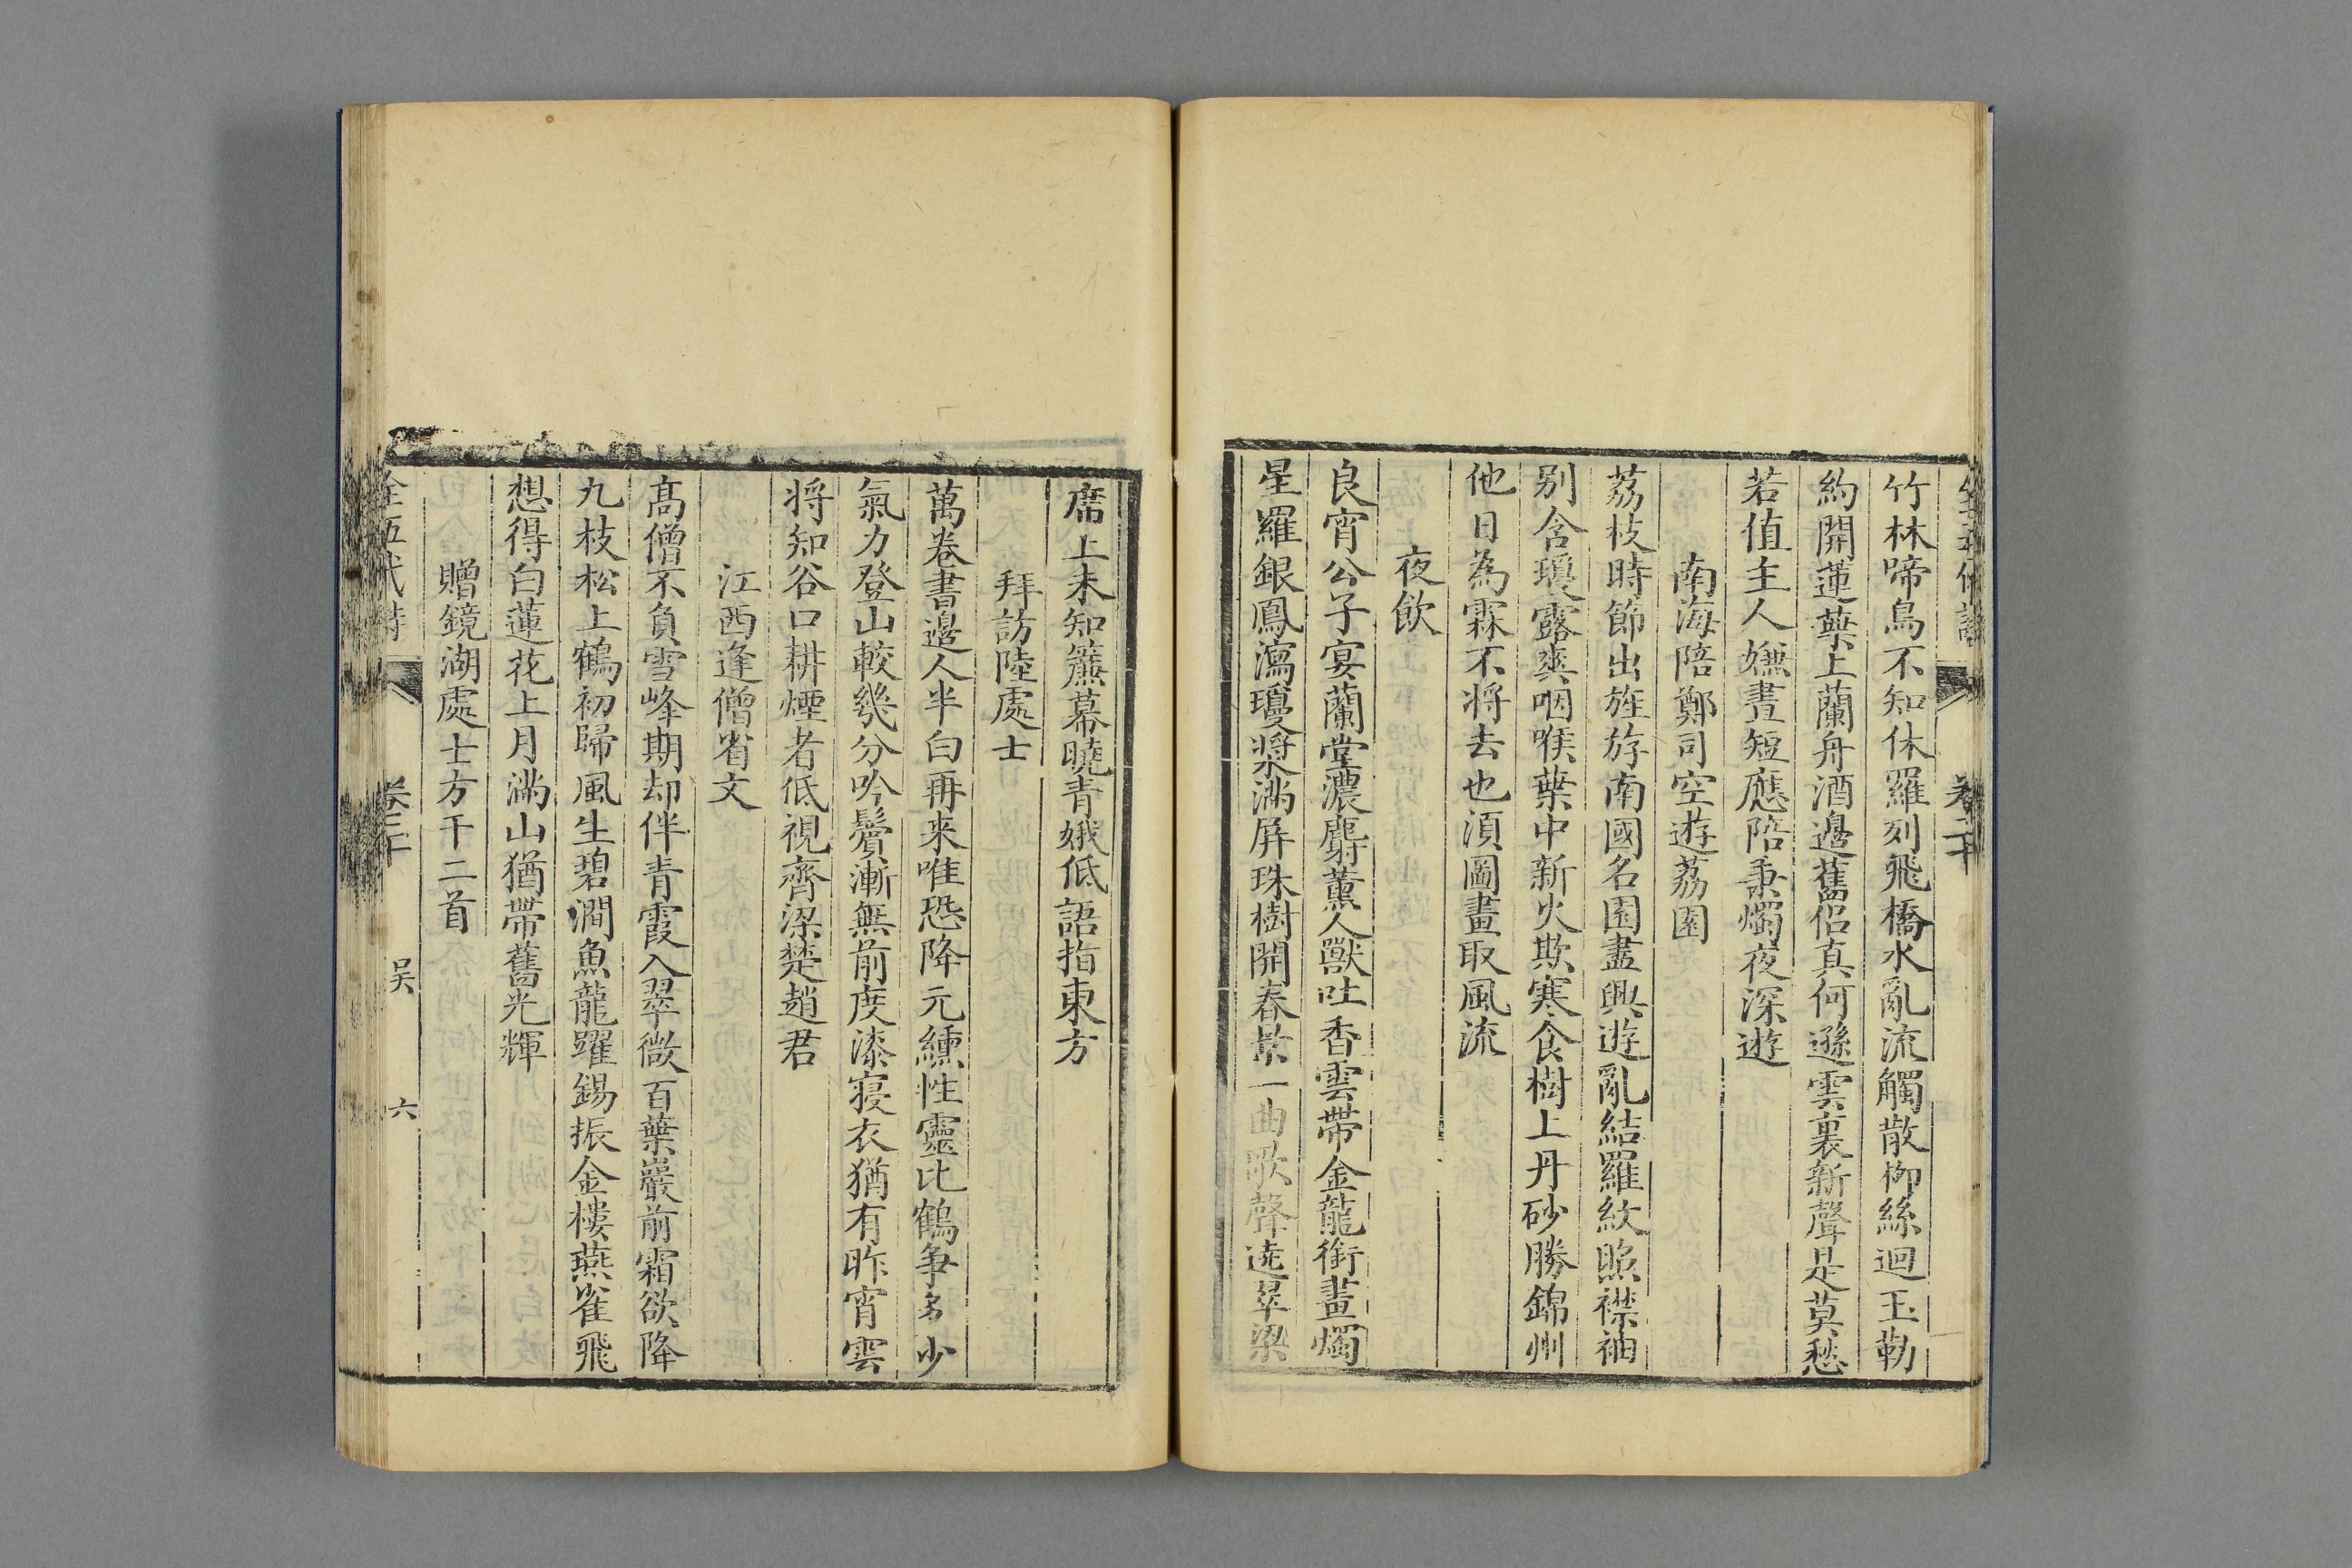 竹林啼鳥不知休羅列飛橋水亂流觸散柳絲迴玉勒
約開蓮葉上蘭舟酒邊舊侶真何遜雲裏新聲是莫愁
若值主人嫌晝短應陪秉燭夜深遊
南海陪鄭司空遊荔園
荔枝時節出旌斿南國名園盡興遊亂結羅紋照襟袖
别含瓊露爽咽喉葉中新火欺寒食樹上丹砂勝錦州
他日為霖不將去也湏圖畫取風流
夜飲
良宵公子宴蘭堂濃麝薰人獸吐香雲帶金龍銜畫燭
星羅銀鳳瀉瓊漿滿屛珠樹開春景一曲歌聲遶翠梁
席上未知簾幕曉青娥低語指東方
拜訪陸處士
萬卷書邊人半白再來唯恐降元纁性靈比鶴争多少
氣力登山較幾分吟鬢漸無前度漆寢衣猶有昨宵雲
將知谷口耕煙者低視齊梁楚趙君
江西逢僧省文
髙僧不負雪峰期却伴青霞入翠微百葉巖前霜欲降
九枝松上鶴初歸風生碧澗魚龍躍錫振金樓燕雀飛
想得白蓮花上月滿山猶帶舊光輝
贈鏡湖處士方干二首
全五代詩 卷二十 吳 六